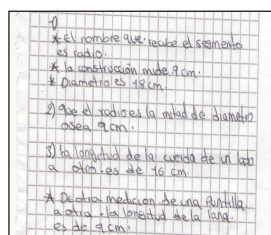 1)
* El nombre que recibe el segmento
es radio.
* la construcción mide 9 cm.
* Diametro es 18 cm.
2) que el radio es la mitad de diametro
osea 9 cm.
3) la longitud de la cuerda de un lado
a otro es de 16 cm.
* De otra medicion de una Puntilla
a otra, la longitud de la lana.
es de 9 cm.